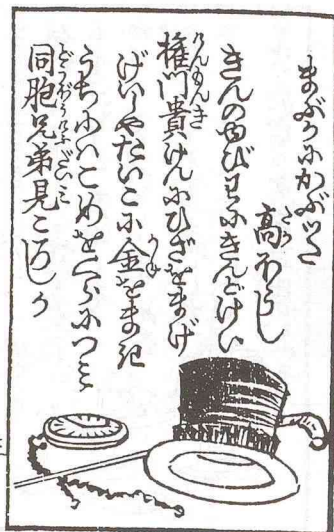 まぶかにかぶつた
高ぼうし
きんのゆびわにきんどけい
権門貴けんにひざをまげ
げいしやたいこに金をまき
うちにハこめをくらにつミ
同胞兄弟見ごろしか